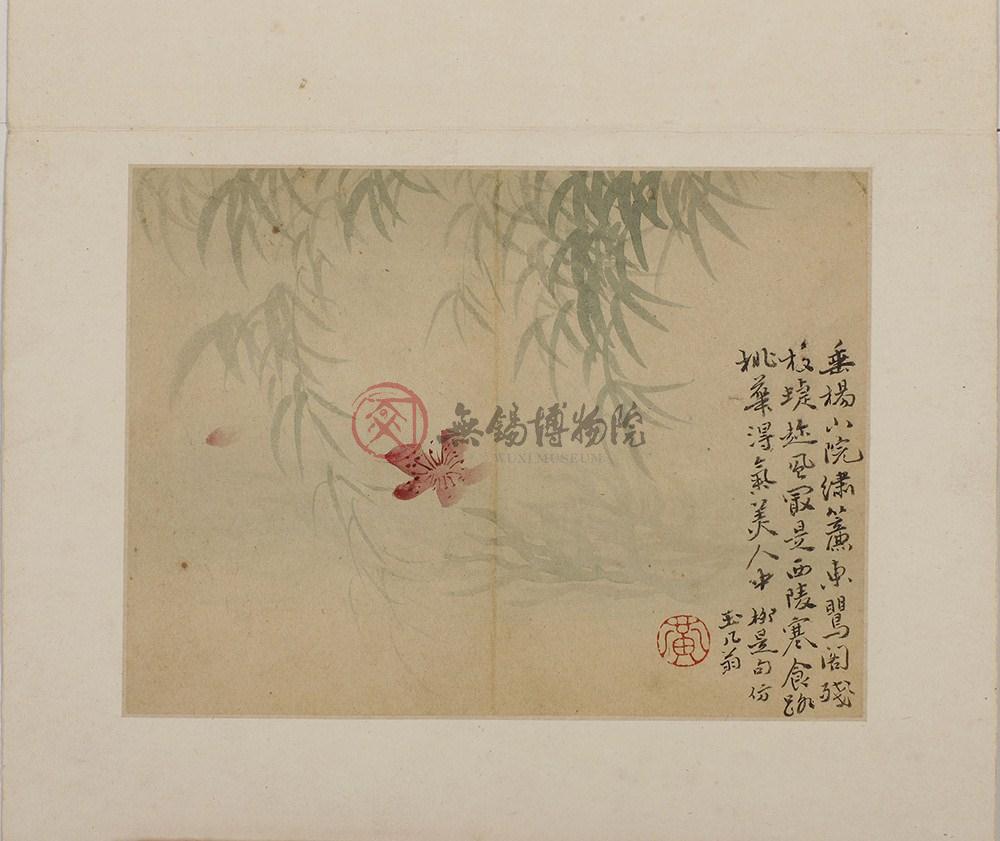 垂楊小院繡簾東鸎閣殘
枝蝶趂風冣是西陵寒食路
桃華得氣美人中
柳是句仿
玉几翁
黃
無錫博物院
WUXI MUSEUM